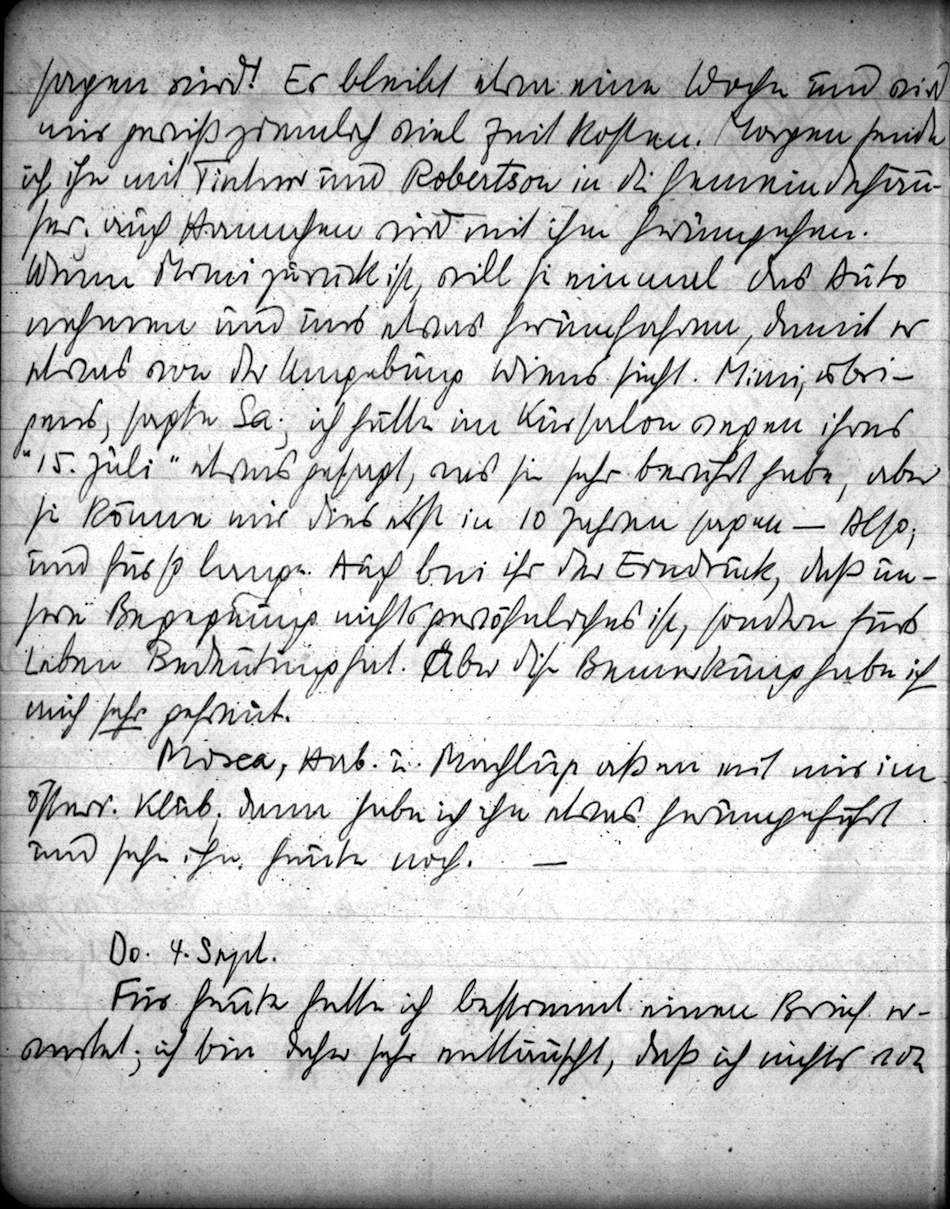 sagen wird! Er bleibt etwa eine Woche und wird
mir gewiß ziemlich viel Zeit kosten. Morgen sende
ich ihn mit Tintner und Robertson in die Gemeindehäu-
ser, auch Hannchen wird mit ihm herumgehen.
Wenn Mimi zurück ist, will sie einmal das Auto
nehmen und uns etwas herumfahren, damit er
etwas von der Umgebung Wiens sieht. Mimi, übri-
gens, sagte Sa., ich hätte im Kürsalon wegen ihres
"15. Juli" etwas gesagt, was sie sehr berührt habe, aber
sie könne mir dies erst in 10 Jahren sagen — Also,
und für so lange. Auch bei ihr der Eindruck, daß un-
sere Begegnung nichts gewöhnliches ist, sondern fürs
Leben Bedeutung hat. Über diese Bemerkung habe ich
mich sehr gefreut.
Mosca, Hab. u. Machlup aßen mit mir im
österr. Klub, dann habe ich ihn etwas herumgeführt
und sehe ihn heute noch. —
Do. 4. Sept.
Für heute hatte ich bestimmt einen Brief er-
wartet; ich bin daher sehr enttäuscht, daß ich nichts von